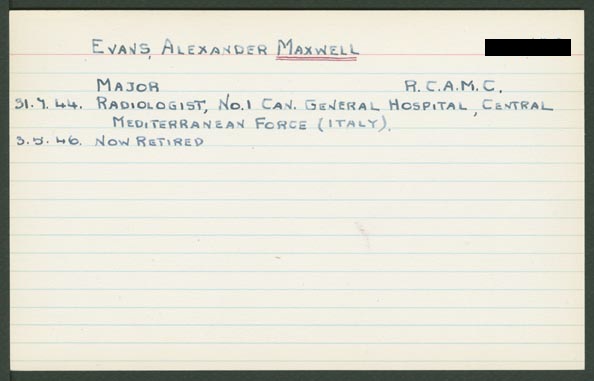 EVANS, ALEXANDER MAXWELL
MAJOR R.C.A.M.C.
31.7.44. RADIOLOGIST, NO.1 CAN. GENERAL HOSPITAL, CENTRAL
MEDITERRANEAN FORCE (ITALY).
3.5.46. NOW RETIRED